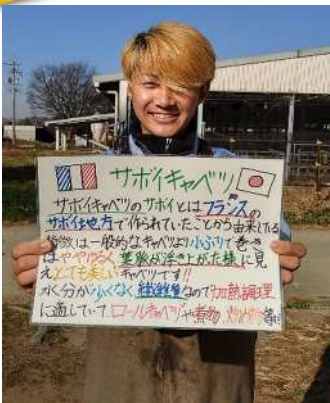 サボイキャベツ
サボイキャベツのサボイとはフランスの
サボイ地方で作られていたことから由来している
特徴は一般的なキャベツより小ぶりで巻き
はややゆるく葉脈が浮き上がた様に見
えとても美しいキャベツです!!
水分が少なく繊維質なので加熱調理
に適していて、ロールキャベツや煮物、